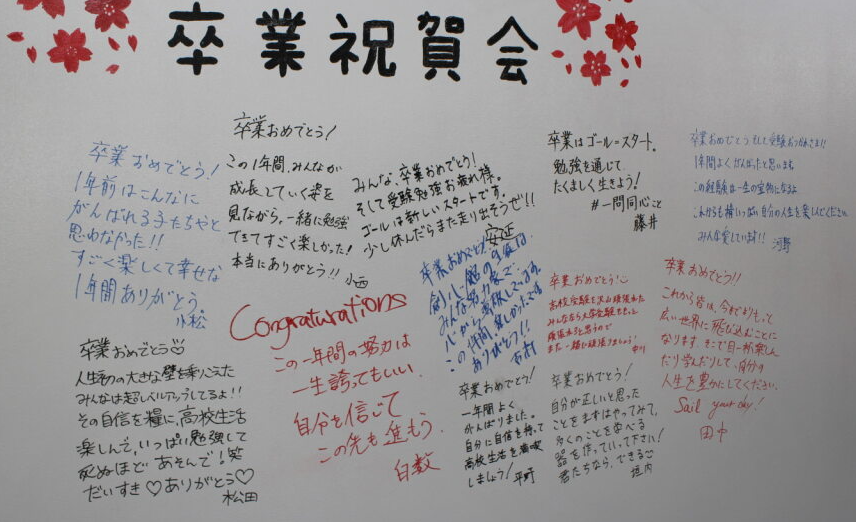 卒業祝賀会
卒業おめでとう!
1年前はこんなに
がんばれる子たちやと
思わなかった!!
すごく楽しくて幸せな
1年間ありがとう
小松
卒業おめでとう!
この1年間、みんなが
成長していく姿を
見ながら、一緒に勉強
できてすごく楽しかった!
本当にありがとう!!
小西
みんな、卒業おめでとう!
そして受験勉強お疲れ様。
ゴールは新しいスタートです。
少し休んだらまた走り出そうぜ!!
安延
卒業はゴール=スタート。
勉強を通じて
たくましく生きよう!
#一問同心こと
藤井
卒業おめでとう そして受験おつかれさま!!
1年間よくがんばったと思います。
この経験は一生の宝物になるよ
これからも精いっぱい自分の人生を楽しんでください
みんな愛しいます!! 河野
卒業おめでとう♡
人生初の大きな壁を乗りこえた
みんなは超レベルアップしてるよ!!
その自信を糧に、高校生活
楽しんで、いっぱい勉強して
死ぬほど あそんで!笑
だいすき♡ありがとう♡
松田
Congraturations
この一年間の努力は
一生誇ってもいい。
自分を信じて
この先も進もう。
白数
卒業おめでとう。
みんな努力家で
この1年間楽しかったです
ありがとう!!
卒業おめでとう!
高校受験を沢山頑張れた
みんななら大学受験もきっと
頑張れると思うので
また一緒に頑張りましょう!
中川
卒業おめでとう!!
これから皆は、今までよりもって
広い世界に飛び込むことに
なります。そこで目一杯楽しん
だり学んだりして、自分の
人生を豊かにしてください。
Sail your day!
田中
卒業おめでとう!
一年間よく
がんばりました。
自分に自信を持って
高校生活を満喫
しましょう! 平町
卒業おめでとう!
自分が正しいと思った
ことをまずはやってみて、
多くのことを学べる
器を作っていって下さい!
君たちなら、できる
垣内